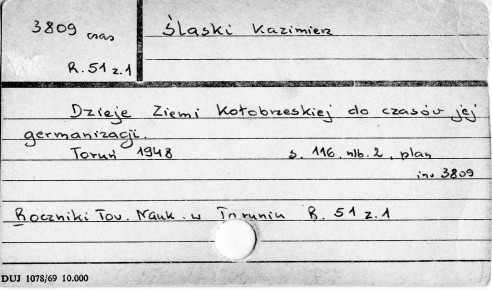 3809 czas
R. 51 z. 1
Śląski Kazimierz
Dzieje Ziemi Kołobrzeskiej do czasów jej
germanizacji.
Toruń 1948 s. 116, nlb. 2, plan
inw 3809
Roczniki Tow. Nauk. w Toruniu R. 51 z. 1
DUJ 1078/69 10.000